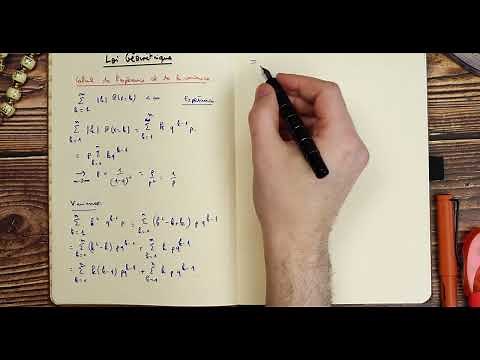 Loi Géométrique
Calcul de l'espérance et de la variance.
\sum_{k=1}^{n} |k| P(X=k) < ∞ Espérance
\sum_{k=1}^{n} |k| P(X=k) = \sum_{k=1}^{n} k q^{k-1} p.
= p \sum_{k=1}^{n} k q^{k-1}
→ p × \frac{1}{(1-q)^2} = \frac{p}{p^2} = \frac{1}{p}
Variance
\sum_{k=1}^{n} k^2 q^{k-1} p = \sum_{k=1}^{n} (k^2-k+k) p q^{k-1}
= \sum_{k=1}^{n} (k^2-k) p q^{k-1} + \sum_{k=1}^{n} k p q^{k-1}
= \sum_{k=1}^{n} k(k-1) p q^{k-1} + \sum_{k=1}^{n} k p q^{k-1}
=